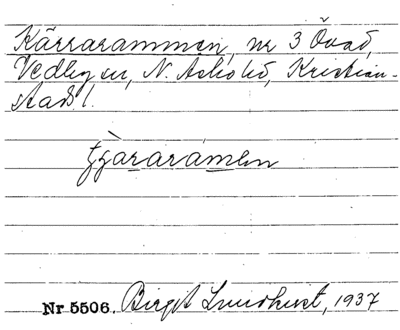 Kärrarammen, nr 3 Övad,
Vedbyn, N. Åsbo hd, Kristian-
stads l.
tjàrarámen
Nr 5506. Birgit Lundkvist, 1937